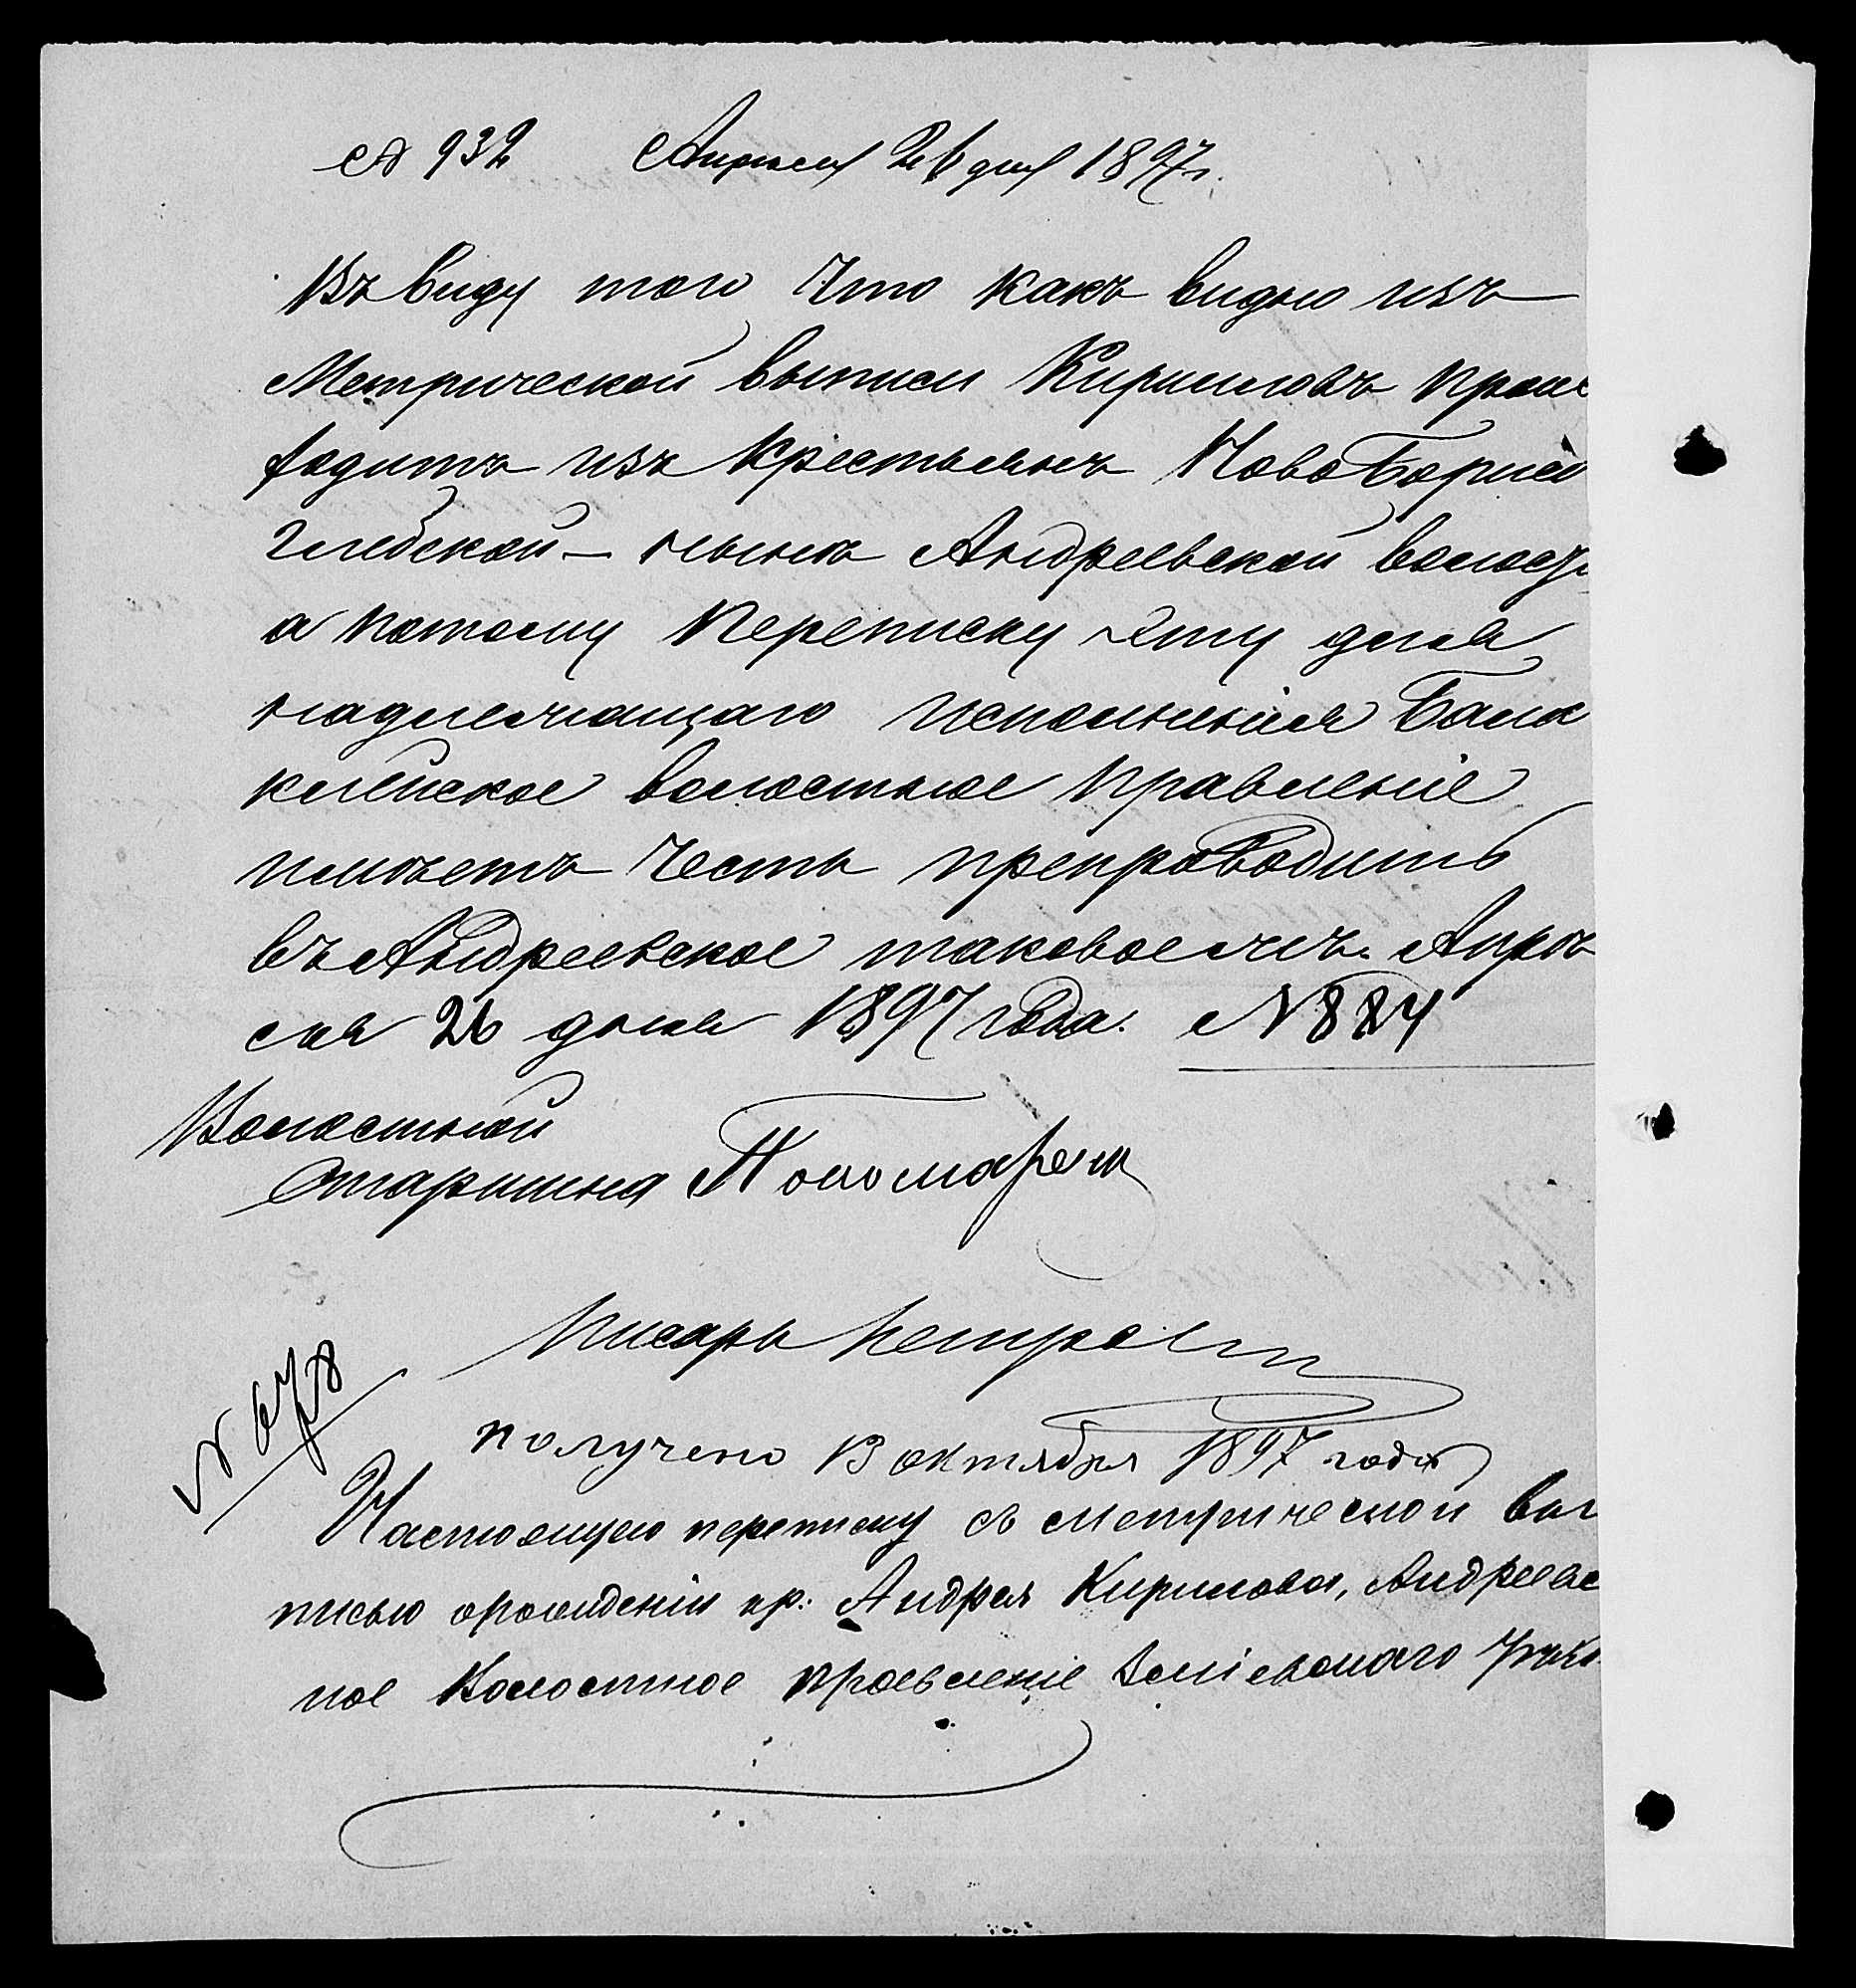 № 932 Апреля 26 дня 1897 г.
Въ виду того что какъ видно изъ
Метрической выписи Кириловъ проис
ходитъ изъ крестьянъ НовоБорисо
глебской – нынѣ Андреевской волости
а потому переписку эту для
надлежащаго исполненія Балак
клейское волостное правленіе
имѣетъ честь препроводить
въ Андреевское таковое же. Апрѣ
ля 26 дня 1897 года. № 884
Волостной
Старшина Пономарен
Писарь Петров
№ 678
получено 13 октября 1897 года
Настоящую переписку съ метрической вы
писью о рожденіи кр: Андрея Кирилова, Андреевс
кое Волостное правленіе Зміевскаго